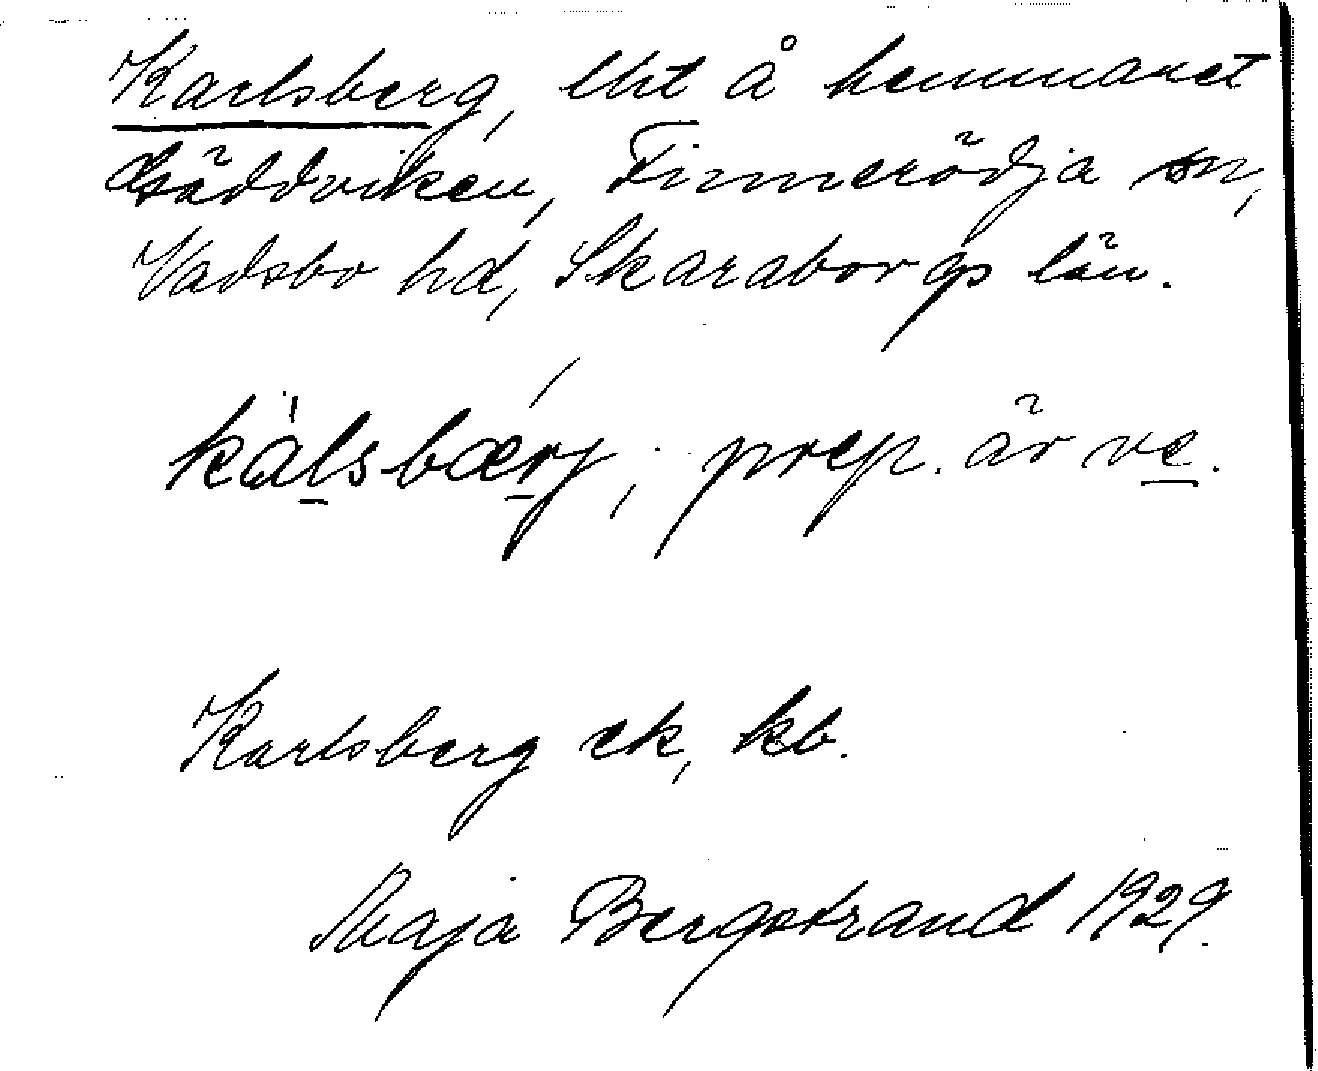 Karlsberg, lht å hemmanet
Gäddviken, Finnerödja sn,
Vadsbo hd, Skaraborgs län.
kàlsbærj; prep. är ve.
Karlsberg ek, kb.
Maja Bergstrand 1929.